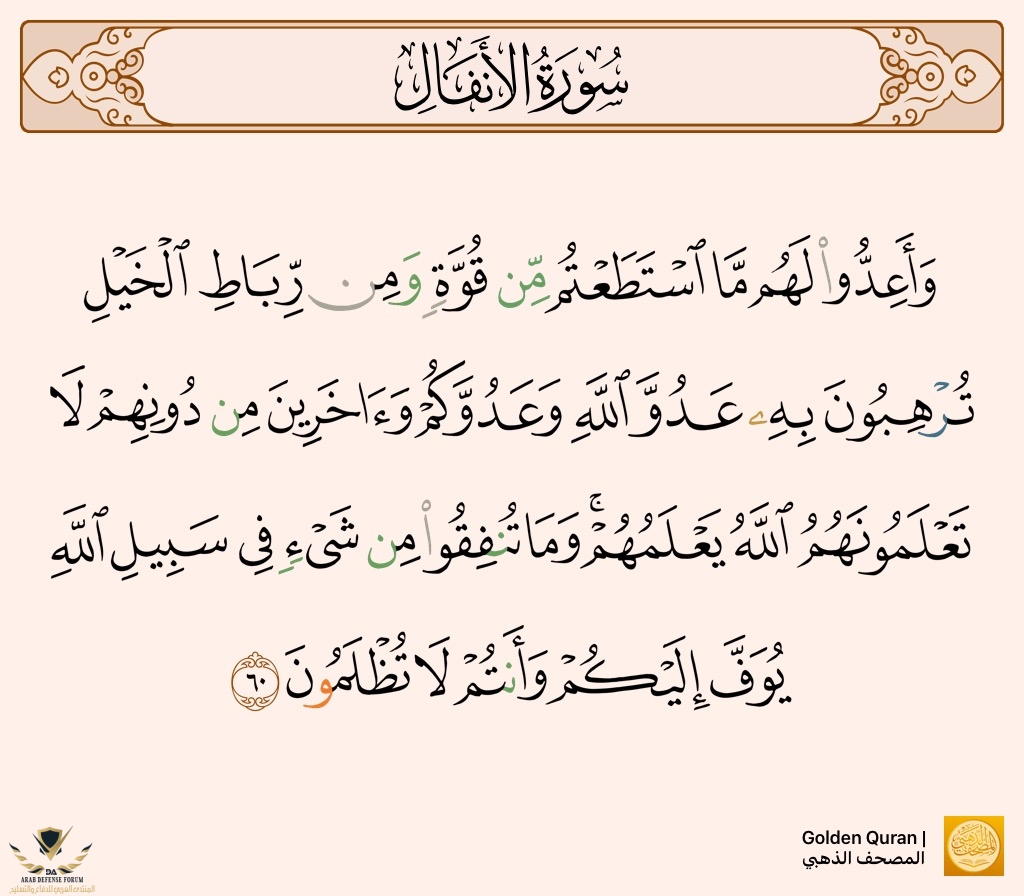 سُورَةُ الأَنفَالِ
وَأَعِدُّوا۟ لَهُم مَّا ٱسْتَطَعْتُم مِّن قُوَّةٍ وَمِن رِّبَاطِ ٱلْخَيْلِ
تُرْهِبُونَ بِهِۦ عَدُوَّ ٱللَّهِ وَعَدُوَّكُمْ وَءَاخَرِينَ مِن دُونِهِمْ لَا
تَعْلَمُونَهُمُ ٱللَّهُ يَعْلَمُهُمْ ۚ وَمَا تُنفِقُوا۟ مِن شَىْءٍ فِى سَبِيلِ ٱللَّهِ
يُوَفَّ إِلَيْكُمْ وَأَنتُمْ لَا تُظْلَمُونَ ٦٠
Golden Quran |
المصحف الذهبي
المصحف الذهبي
DA
ARAB DEFENSE FORUM
المنتدى العربي للدفاع والتسليح